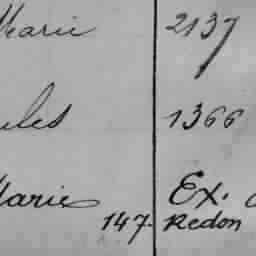 Marie 2137
ules 1366
Marie Ex.
147. Redon